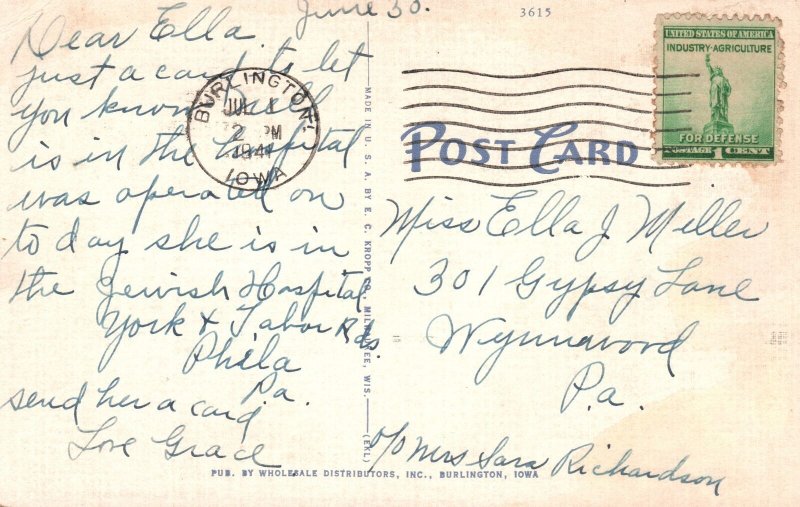 June 30.
Dear Ella
just a card to let
you know
is in the hospital
was operated on
to day she is in
the Jewish Hospital
York & Tabor Rds.
Phila
Pa.
send her a card
Love Grace
BURLINGTON
JUL 1
2 PM
1941
IOWA
MADE IN U. S. A. BY E. C. KROPP CO., MILWAUKEE, WIS.
(EKL)
3615
POST CARD
UNITED STATES OF AMERICA
INDUSTRY-AGRICULTURE
FOR DEFENSE
POSTAGE 1 CENT
Miss Ella J Miller
301 Gypsy Lane
Wynnewood
Pa.
c/o Mrs Sara Richardson
PUB. BY WHOLESALE DISTRIBUTORS, INC., BURLINGTON, IOWA